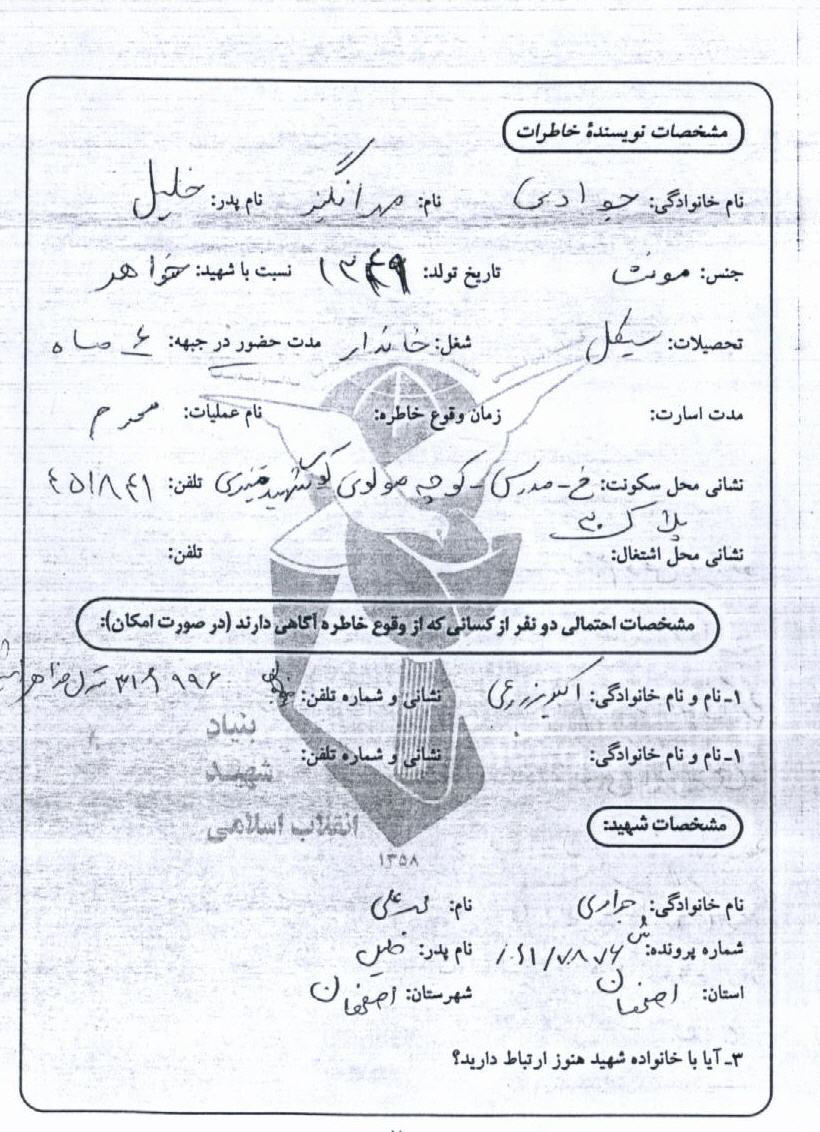 مشخصات نویسندهٔ خاطرات
نام خانوادگی: جوادی نام: مهرانگیز نام پدر: خلیل
جنس: مونث تاریخ تولد: ۱۳۴۹ نسبت با شهید: خواهر
تحصیلات: سیکل شغل: خاندار مدت حضور در جبهه: ۶ ماه
مدت اسارت: زمان وقوع خاطره: نام عملیات: محرم
نشانی محل سکونت: خ - مدرس - کوچه مولوی کوی شهید تلفن: ۴۵۱۸۴۱
پلاک ۳۰
نشانی محل اشتغال: تلفن:
مشخصات احتمالی دو نفر از کسانی که از وقوع خاطره آگاهی دارند (در صورت امکان):
۱ـ نام و نام خانوادگی: نشانی و شماره تلفن:
۱ـ نام و نام خانوادگی: نشانی و شماره تلفن:
بنیاد
شهید
انقلاب اسلامی
۱۳۵۸
مشخصات شهید:
نام خانوادگی: جوادی نام:
شماره پرونده: نام پدر: خلیل
استان: اصفهان شهرستان: اصفهان
۳ـ آیا با خانواده شهید هنوز ارتباط دارید؟